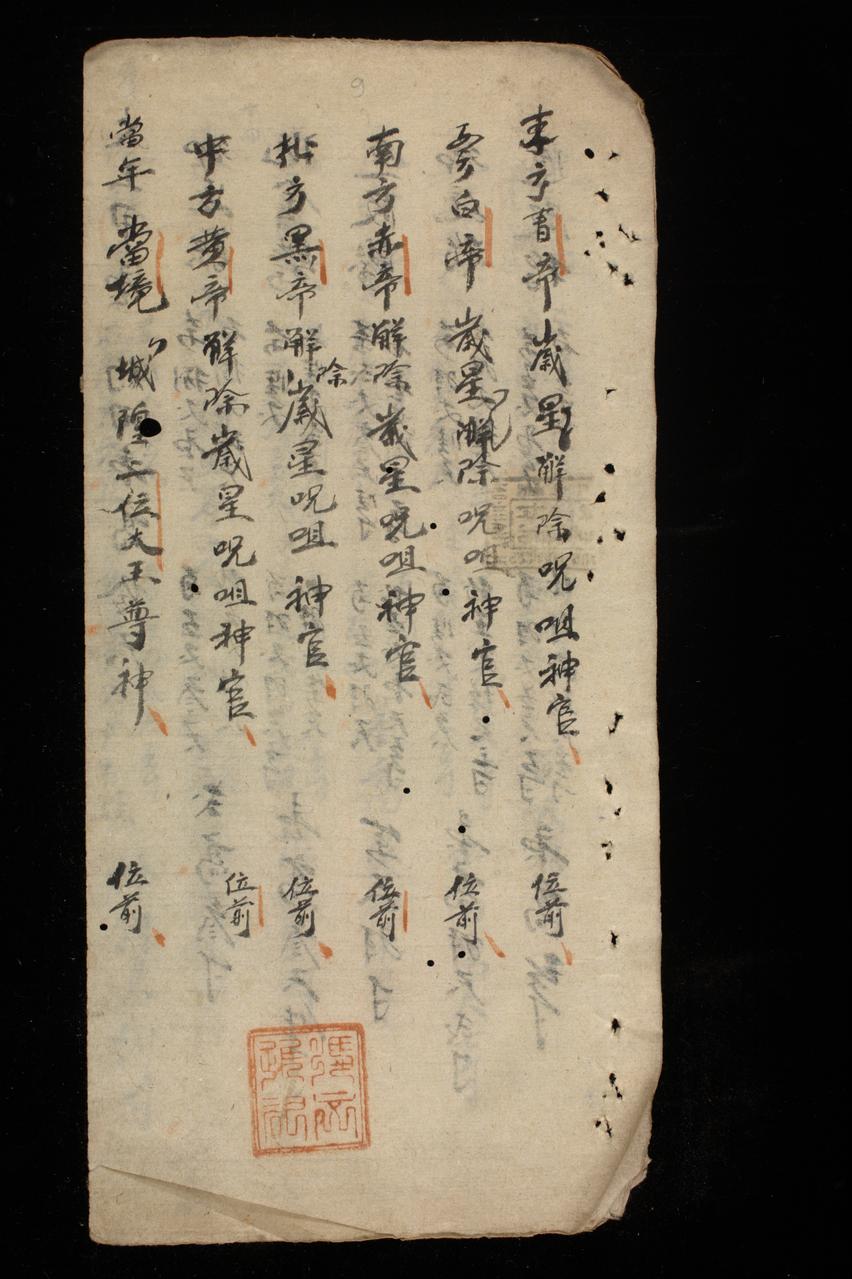 東方青帝歲星解除呪咀神官 位前
西方白帝歲星解除呪咀神官 位前
南方赤帝解除歲星呪咀神官 位前
北方黑帝解除歲星呪咀神官 位前
中方黃帝解除歲星呪咀神官 位前
當年當境城隍主位大王尊神 位前
9